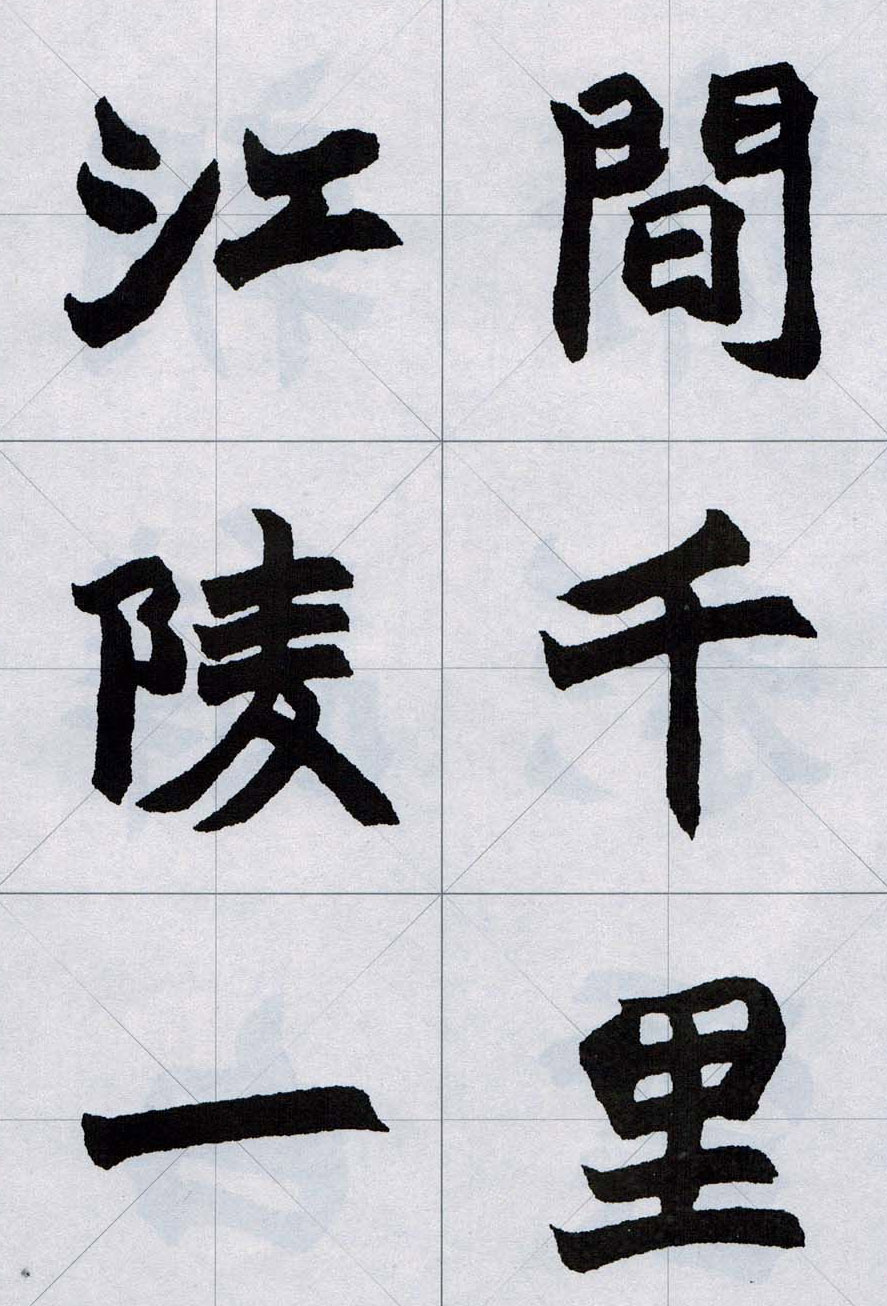 間千里
江陵一